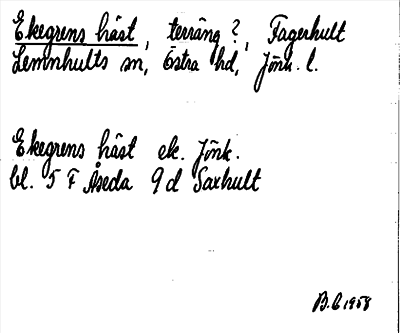 Ekegrens häst, terräng?, Fagerhult
Lemnhults sn, Östra hd, Jönk. l.
Ekegrens häst ek. Jönk.
bl. 5 F Åseda 9 d Saxhult
1958